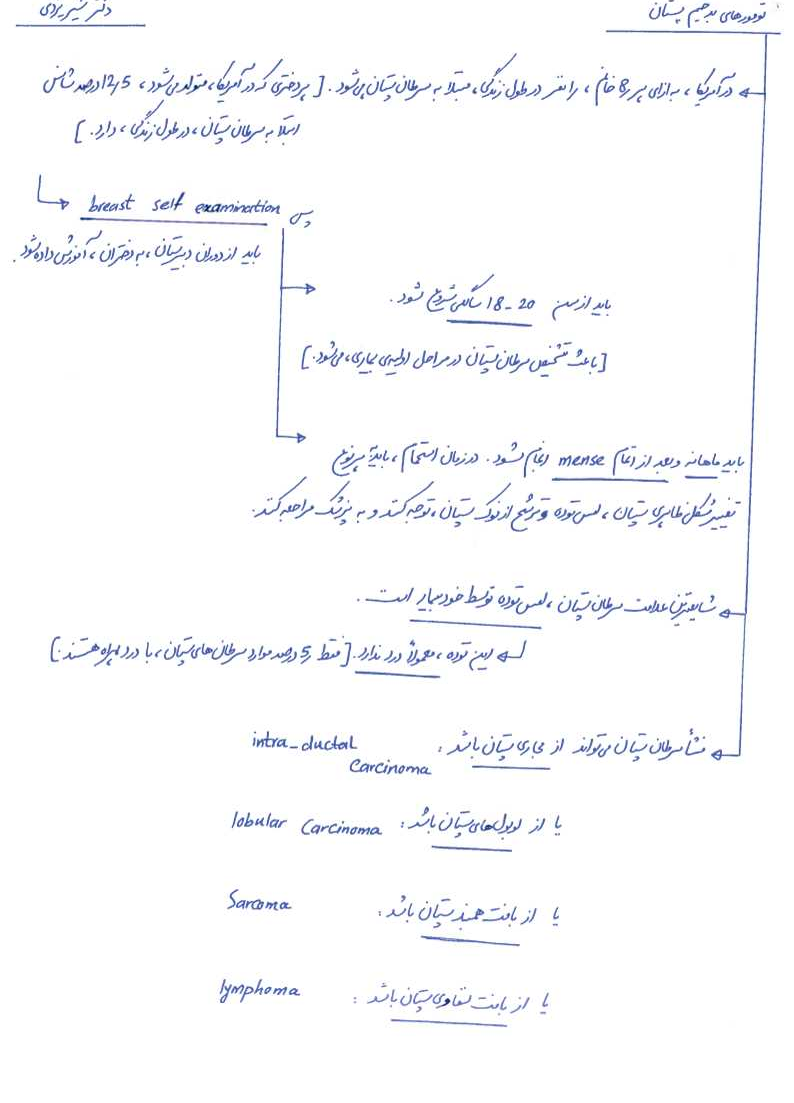 تومورهای بدخیم پستان
دکتر شیریزدی
در آمریکا، به ازای هر 8 خانم، 1 نفر در طول زندگی، مبتلا به سرطان پستان می‌شود. [هر دختری که در آمریکا، متولد می‌شود، 12,5 درصد شانس
ابتلا به سرطان پستان، در طول زندگی، دارد.]
پس breast self examination
باید از دوران دبیرستان، به دختران، آموزش داده شود.
باید از سن 18-20 سالگی شروع شود.
[باعث تشخیص سرطان پستان در مراحل اولیه‌ی بیماری، می‌شود.]
باید ماهانه و بعد از اتمام mense انجام شود. در زمان استحمام، باید به هر نوع
تغییر شکل ظاهری پستان، لمس توده و ترشح از نوک پستان، توجه کند و به پزشک مراجعه کند.
شایعترین علامت سرطان پستان، لمس توده توسط خود بیمار است.
این توده، معمولاً درد ندارد. [فقط 5 درصد موارد سرطان‌های پستان، با درد همراه هستند.]
منشأ سرطان پستان می‌تواند از مجاری پستان باشد: intra-ductal
carcinoma
یا از لوبول‌های پستان باشد: lobular carcinoma
یا از بافت همبند پستان باشد: Sarcoma
یا از بافت لنفاوی پستان باشد: lymphoma